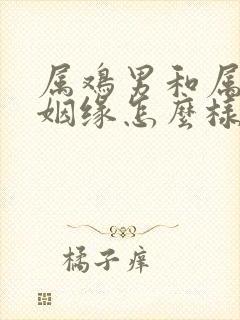 属鸡男和属
姻缘怎麼樣
橘子痒